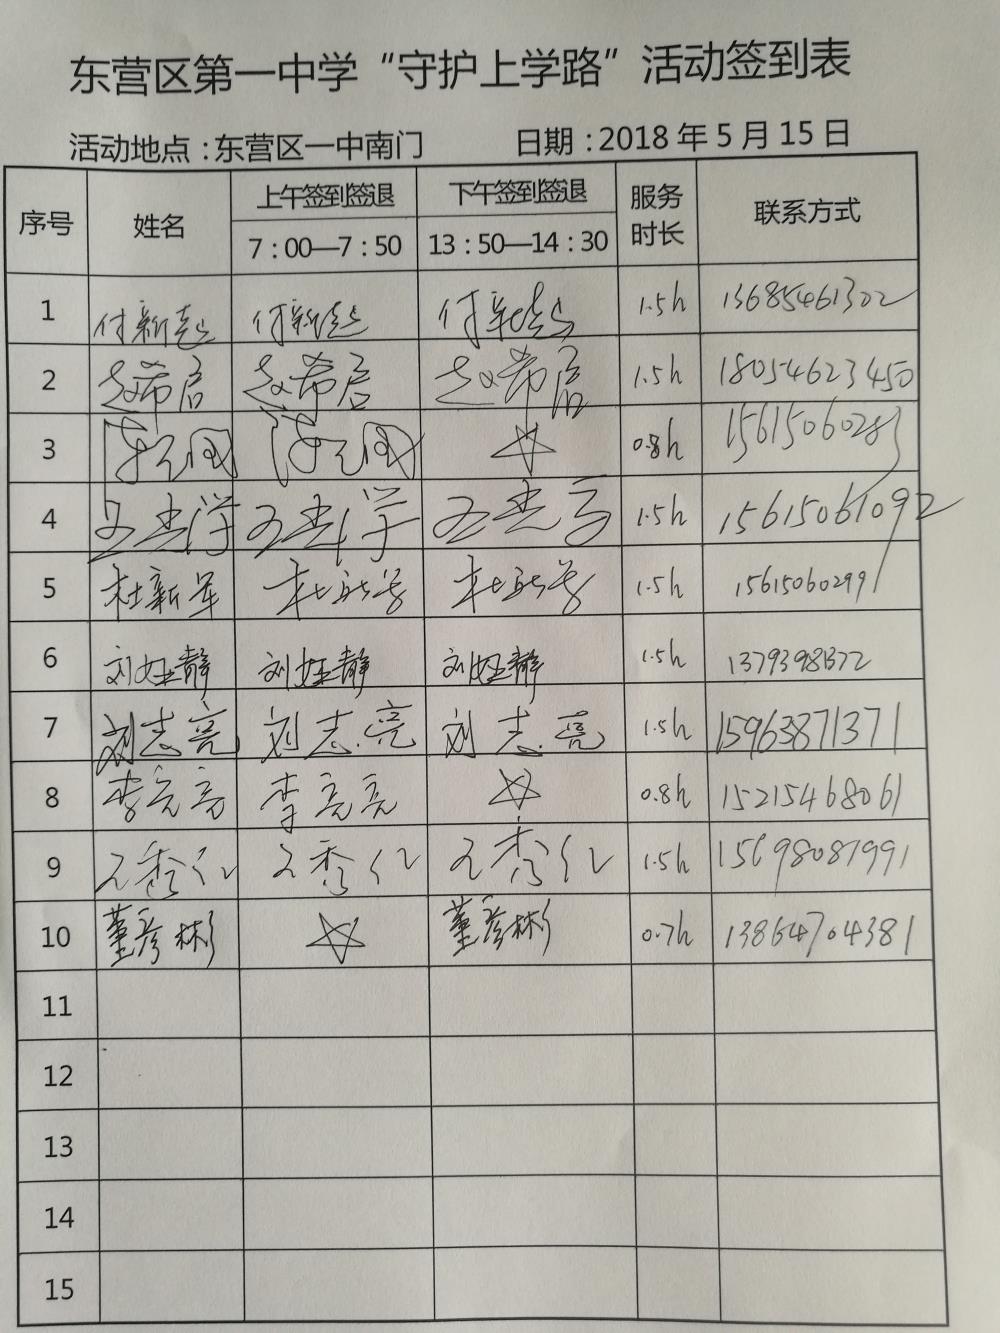 东营区第一中学“守护上学路”活动签到表
活动地点：东营区一中南门 日期：2018年5月15日
序号 姓名 上午签到签退 7:00—7:50 下午签到签退 13:50—14:30 服务时长 联系方式
1 付新 付新 付新 1.5h 13685461322
2 赵希启 赵希启 赵希启 1.5h 18054623450
3 ☆ 0.8h 15615060283
4 1.5h 15615061092
5 杜新军 杜新军 杜新军 1.5h 15615060299
6 刘娅静 刘娅静 刘娅静 1.5h 13793981372
7 刘志亮 刘志亮 刘志亮 1.5h 15963871371
8 李亮亮 李亮亮 ☆ 0.8h 15215468061
9 王秀仁 王秀仁 王秀仁 1.5h 15698087991
10 董彦彬 ☆ 董彦彬 0.7h 13864704381
11
12
13
14
15